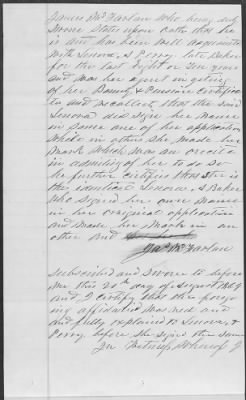 James McFarlan who being duly
Sworn States upon Oath that he
is and has been well acquainted
with Lenora A Perry late Baker
for the last Eight or Ten years
and was her agent in geting
of her Bounty & Pension Certifica
te and recollect that the said
Lenora did sign her name
in some one of her application
whole in others she made her
mark which was on
in of her to so do
he further certifies that she is
the identical Lenora A Baker
who signed her own name
in her original application
and made her mark in an
other and
Jas McFarlan
subscribed and sworn to before
me this 20th day of August 1869
and I certify that the forego
ing affidavit was read and
and fully explained to Lenora A
Perry before she signed the same
In Witness Whereof I